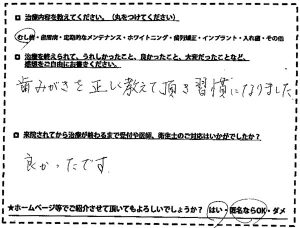 治療内容を教えてください。（丸をつけてください）
むし歯・歯周病・定期的なメンテナンス・ホワイトニング・歯列矯正・インプラント・入れ歯・その他
治療を終えられて、うれしかったこと、良かったこと、大変だったことなど、
感想をご自由にお書きください。
歯みがきを正しく教えて頂き習慣になりました
来院されてから治療が終わるまで受付や医師、衛生士のご対応はいかがでしたか？
良かったです。
★ホームページ等でご紹介させて頂いてもよろしいでしょうか？ はい・匿名ならOK・ダメ